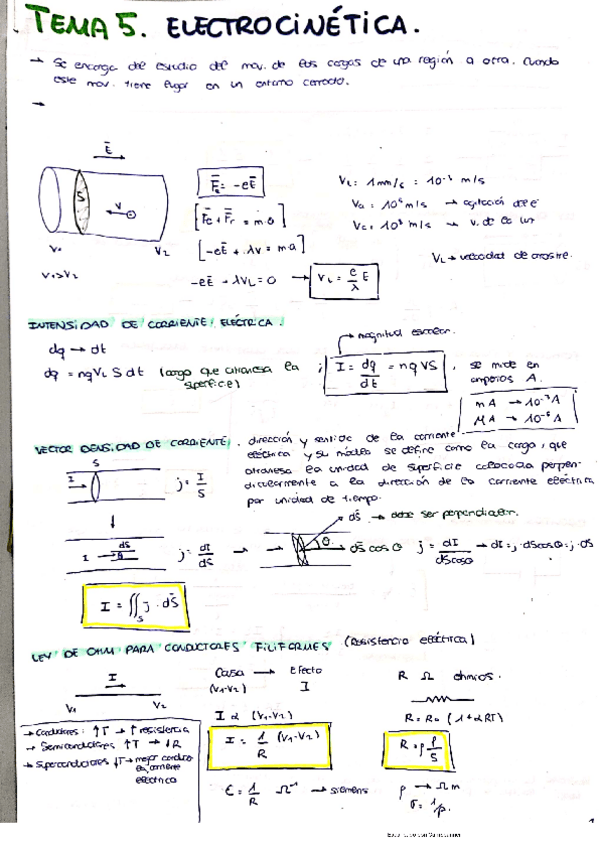 TEMA 5. ELECTROCINÉTICA.
→ Se encarga del estudio del mov. de las cargas de una región a otra. Cuando
este mov. tiene lugar en un entorno cerrado.
→
E̅
S
V
V₁
V₂
V₁>V₂
F̅e = -eE̅
[F̅e + F̅r = m·a]
[-eE̅ + λV = m·a]
-eE̅ + λVL = 0 → VL = e/λ E
VL = 1mm/s = 10⁻³ m/s
→ agitación de e⁻
VL → velocidad de arrastre.
INTENSIDAD DE CORRIENTE ELÉCTRICA.
dq → dt
dq = nqVL S dt (carga que atraviesa la
superficie)
→ magnitud escalar.
; I = dq/dt = nqVS , se mide en
amperios A.
mA → 10⁻³A
MA → 10⁻⁶A
VECTOR DENSIDAD DE CORRIENTE. dirección y sentido de la corriente
eléctrica y su módulo se define como la carga, que
atraviesa la unidad de superficie colocada perpen-
dicularmente a la dirección de la corriente eléctrica
por unidad de tiempo.
S
I → j = I/S
dS̅ → debe ser perpendicular.
I → dS̅ j = dI/dS → θ dS̅ cos θ j = dI/dScosθ → dI = j·dScosθ = j·dS
I = ∬s j · dS̅
LEY DE OHM PARA CONDUCTORES FILIFORMES (Resistencia eléctrica)
I
V₁ V₂
Causa → Efecto
(V₁-V₂) I
I α (V₁-V₂)
I = 1/R (V₁-V₂)
R Ω ohmios.
→ Conductores: ↑T → ↑ resistencia
→ Semiconductores ↑T → ↓R
→ Superconductores ↓T → mejor conduce
la corriente
eléctrica
= 1/R Ω⁻¹ → siemens
ρ → Ωm
σ = 1/ρ.